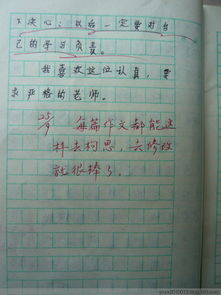 下决心：以后一定要对自
己的学习负责。
我喜欢这位认真，要
求严格的老师。
每篇作文都能这
样去构思，去修改
就很棒了。